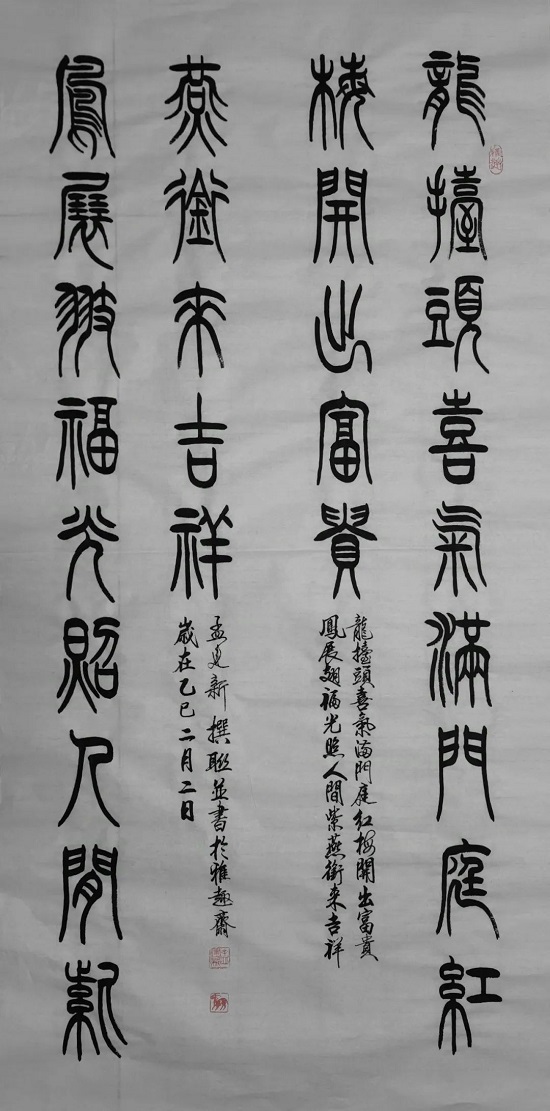 龍擡頭喜氣滿門庭紅
梅開出富貴
鳳展翅福光照人間紫
燕銜來吉祥
龍擡頭喜氣滿門庭紅梅開出富貴
鳳展翅福光照人間紫燕銜來吉祥
孟新撰聯並書於雅趣齋
歲在乙巳二月二日